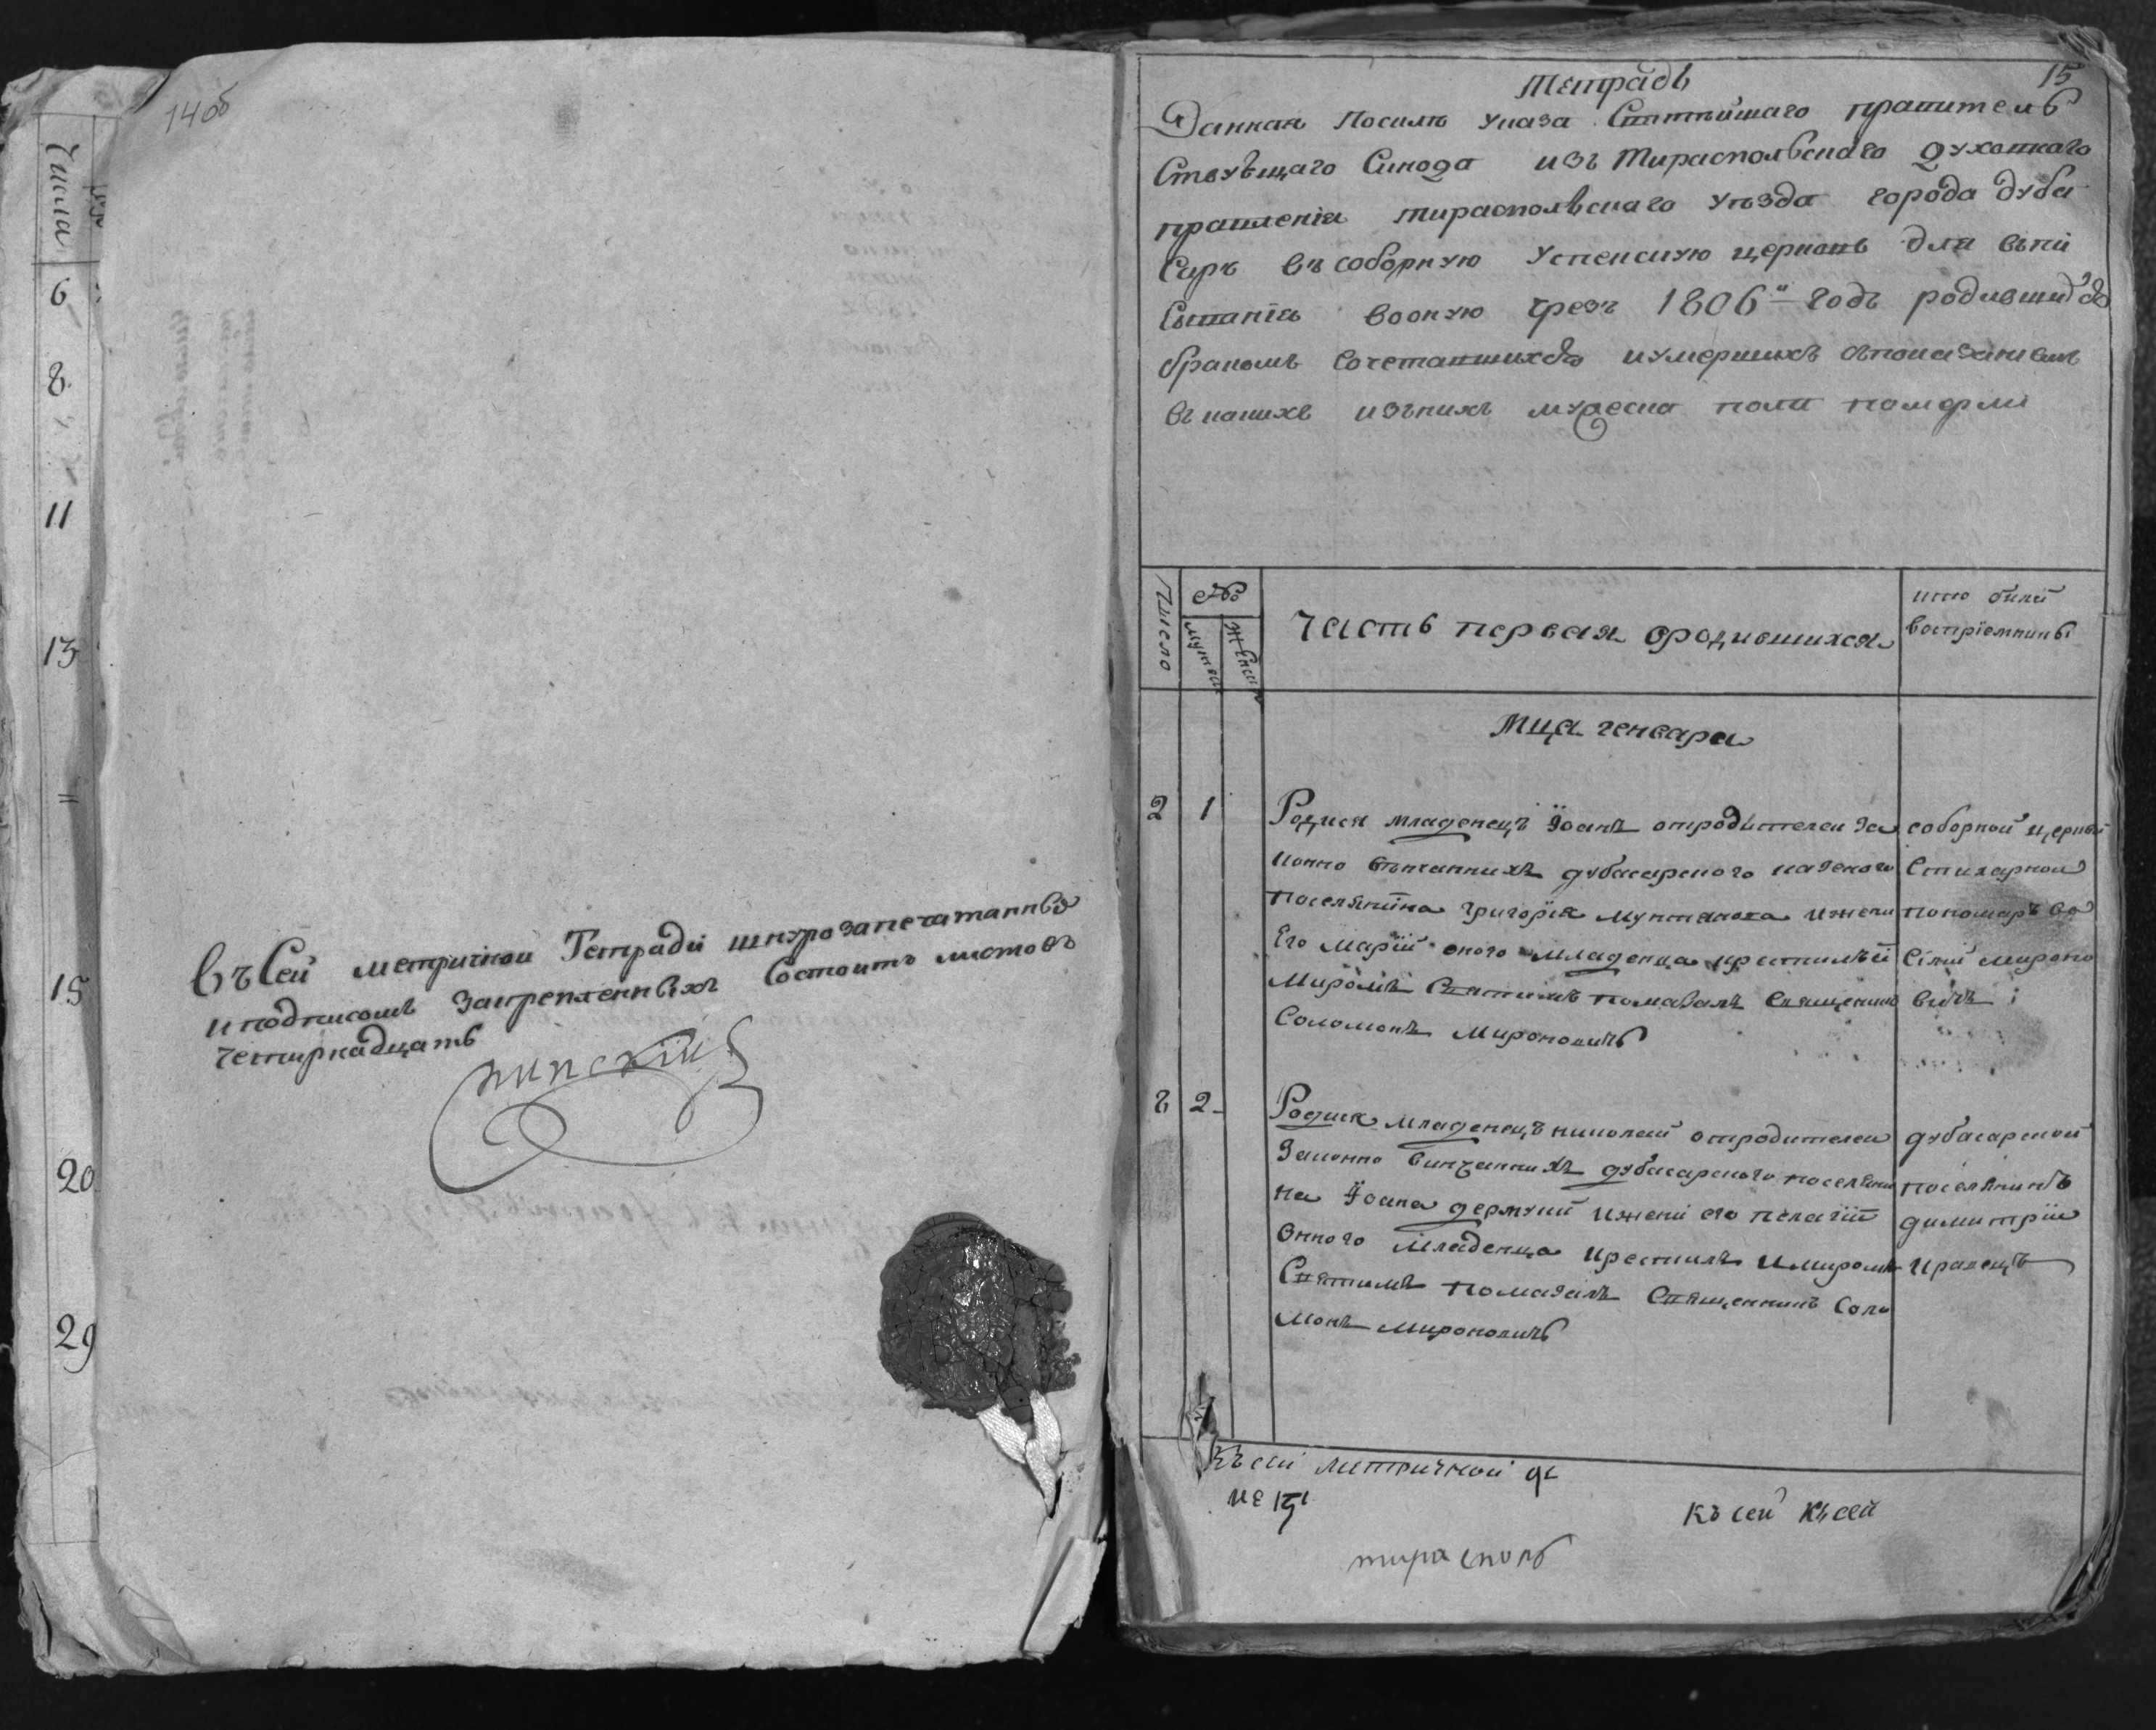 14об
Числа
6
8
11
13
15
20
29
Въ Сей метричнои Тетради шнурозапечатанныхъ
и подписомъ закрепленныхъ Состоитъ листовъ
четирнадцать
15
Тетрадь
Данная Посилѣ указа Святѣйшаго правитель
Ствующаго Синода изъ Тираспольскаго духовнаго
правленія тираспольскаго уѣзда города дуба
Саръ въ соборную Успенскую церковь для впи
Сыванія вооную чрезъ 1806й годъ родившихся
бракомъ Сочетавшихся иумершихъ съпоказаниемъ
Число
№
мужеск
женск
Часть первая ородившихся
кто билй
Воспріемники
Мца генваря
2 1
Родися младенецъ Іоанъ отродителеи за
конно вѣнчаннихъ дубасарского казеного
поселянина григорія мунтянока ижени
Его маріи оного младенца крестилъ и
Миромъ Святимъ помазалъ Священикъ
Соломонъ Мироновичь
соборной церкви
Стихарной
пономаръ ва
Силий мироно
вичъ
8 2
Родися младенецъ николай отродителеи
Законно винчаннихъ дубасарского поселяни
на Іоана дермунй ижени его пелагіи
Онного младенца крестилъ имиромъ
Святимъ помазалъ Священникъ Соло
монъ мироновичь
дубасарской
поселянинъ
димитрій
кравецъ
Къ сей метричной
Къ сей Къ сей
тирасполь